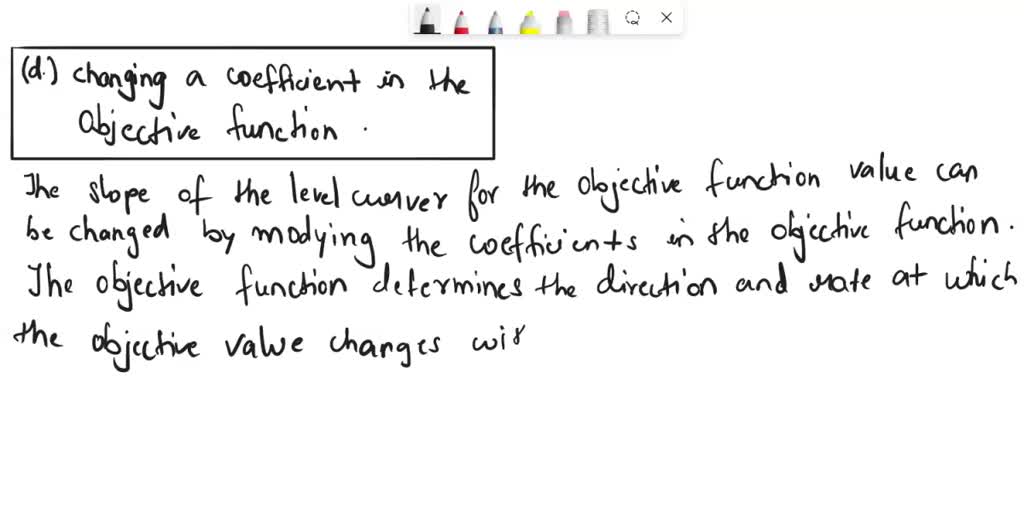 (d.) changing a coefficient in the
Objective function.
The slope of the level curver for the objective function value can
be changed by modying the coefficients in the objective function.
The objective function determines the direction and rate at which
the objective value changes wi